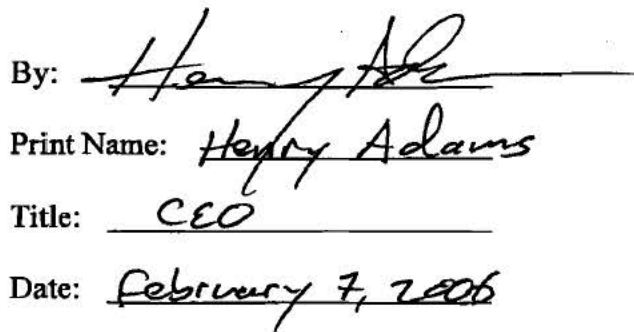 By: Henry Ad
Print Name: Henry Adams
Title: CEO
Date: February 7, 2006